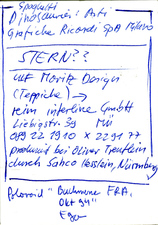 Spaghetti
Dinosaurier: Arti
Grafiche Ricordi SpA Milano
STERN??
uuf Moritz Design
(Teppiche) →
reim interline GmbH
Liebigstr. 39 MÜ
089 22 19 10 x 22 91 77
produziert bei Oliver Treutlein
durch Sahco Hesslein, Nürnberg
Polaroid "Buchmesse FRA,
Okt 94"